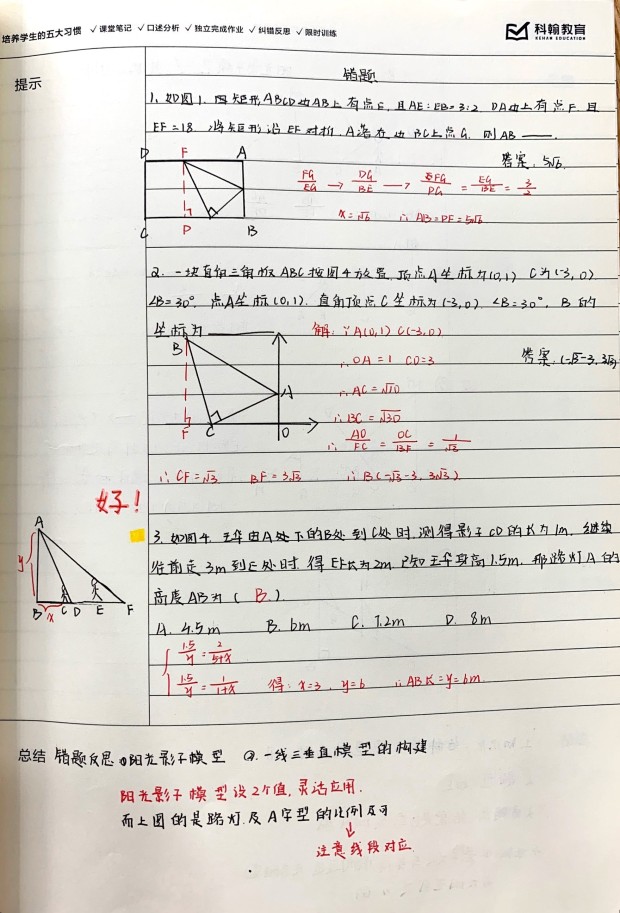 培养学生的五大习惯 ✓课堂笔记 ✓口述分析 ✓独立完成作业 ✓纠错反思 ✓限时训练
科翰教育
KEHAN EDUCATION
提示
错题
1. 如图1, 四矩形ABCD边AB上有点E, 且AE:EB=3:2 DA边上有点F. 且
EF=18. 将矩形沿EF对折, A落在边BC上点G. 则AB ——.
答案. 5√6.
D F A
C P B
FG/EG → DG/BE → FG/PG = EG/BE = 3/2
x=√6 ∴AB=PF=5√6
2. 一块直角三角板ABC按图4放置. 顶点A坐标为(0,1) C为(-3,0)
∠B=30°. 点A坐标(0,1). 直角顶点C坐标为(-3,0). ∠B=30°, B的
坐标为
解: ∵A(0,1) C(-3,0)
B
∴OA=1 CO=3
答案.(-√3-3, 3√3)
∴AC=√10
A
∴BC=√30
F C O
∴ AO/FC = OC/BF = 1/√3
∴CF=√3 BF=3√3 ∴B(-√3-3, 3√3).
好!
3. 如图4, 王华由A处下的B处到C处时. 测得影子CD的长为1m, 继续
往前走3m到E处时. 得EF长为2m 已知王华身高1.5m. 那路灯A的
高度AB为( B. )
A
y
B C D E F
x
A. 4.5m B. 6m C. 7.2m D. 8m
1.5/y = 2/5+x
1.5/y = 1/1+x 得: x=3, y=6 ∴AB长=y=6m.
总结 错题反思 ①阳光影子模型 ②.一线三垂直模型的构建
阳光影子模型设2个值, 灵活应用.
而上图的是路灯. 及A字型的比例反可
↓
注意线段对应.